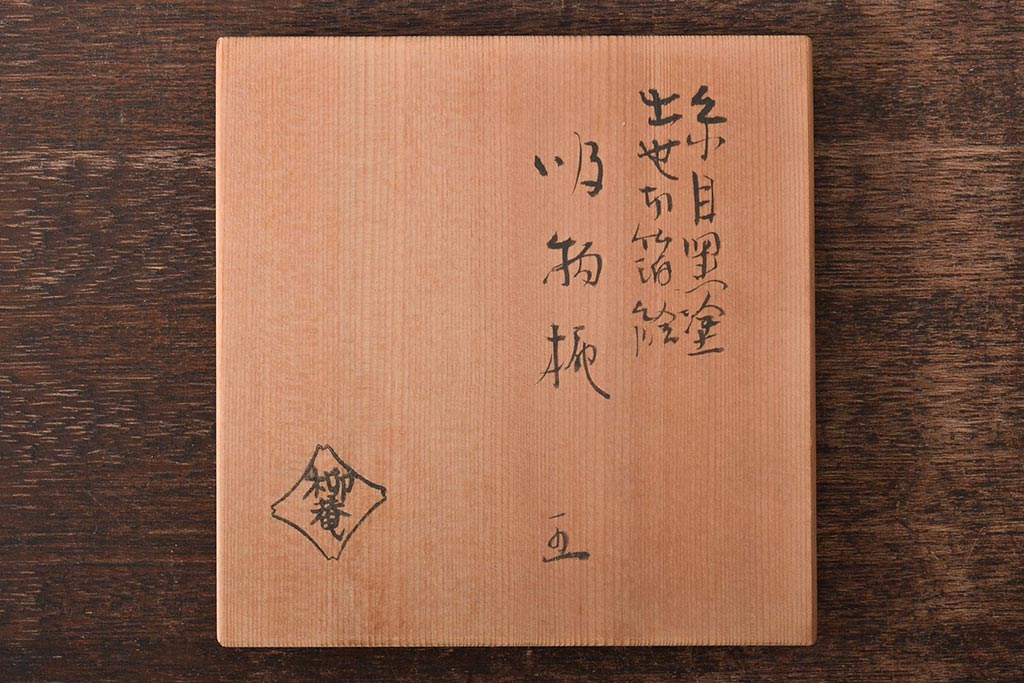 糸目黒塗
出世切箔絵
吸物椀
五
柳菴